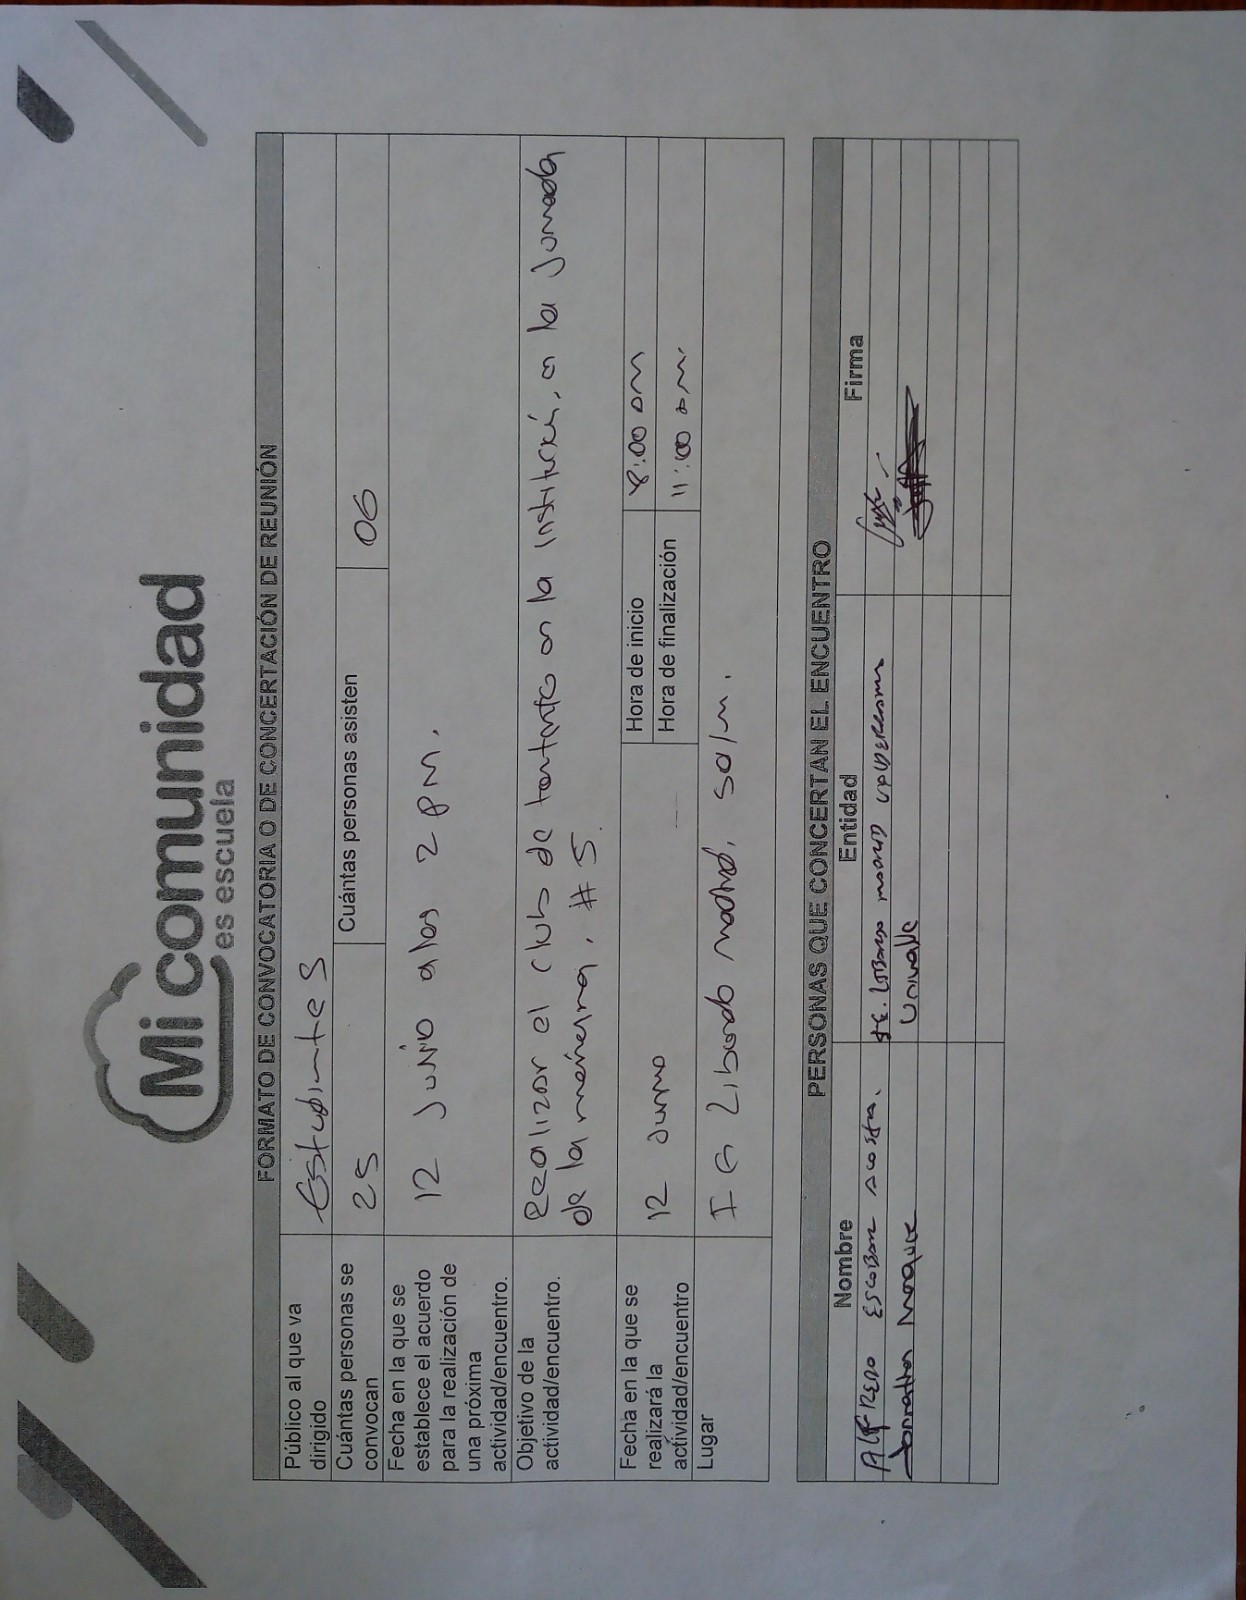 Mi comunidad
es escuela
FORMATO DE CONVOCATORIA O DE CONCERTACIÓN DE REUNIÓN
Público al que va
dirigido
Estudiantes
Cuántas personas se
convocan
25
Cuántas personas asisten
06
Fecha en la que se
establece el acuerdo
para la realización de
una próxima
actividad/encuentro.
12 Junio a las 2 PM.
Objetivo de la
actividad/encuentro.
Realizar el club de en la Institución, en la Jornada
de la mañana, # 5.
Fecha en la que se
realizará la
actividad/encuentro
12 Junio
Hora de inicio
8:00 am
Hora de finalización
11:00 am.
Lugar
Madrid,
PERSONAS QUE CONCERTAN EL ENCUENTRO
Nombre
Entidad
Firma
ALFREDO ESCOBAR ACOSTA.
Jonathan
Univalle